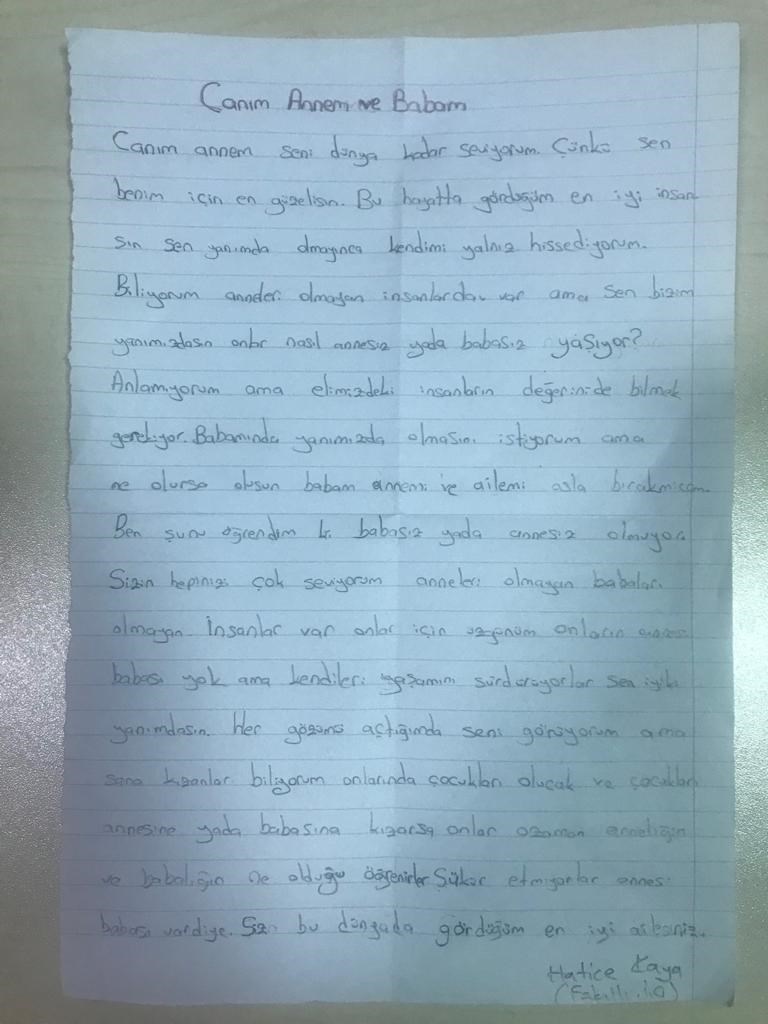 Canım Annem ve Babam
Canım annem seni dünya kadar seviyorum. Çünkü sen
benim için en güzelisin. Bu hayatta gördüğüm en iyi insan
sın sen yanımda olmayınca kendimi yalnız hissediyorum.
Biliyorum anneleri olmayan insanlarda var ama sen bizim
yanımızdasın onlar nasıl annesiz yada babasız yaşıyor?
Anlamıyorum ama elimizdeki insanların değerinide bilmek
gerekiyor. Babamında yanımızda olmasını istiyorum ama
ne olursa olsun babam annemi ve ailemi asla bırakmıcam.
Ben şunu öğrendim ki babasız yada annesiz olmuyor.
Sizin hepinizi çok seviyorum anneleri olmayan babaları
olmayan insanlar var onlar için üzgünüm onların annesi
babası yok ama kendileri yaşamını sürdürüyorlar sen iyiki
yanımdasın. Her gözümü açtığımda seni görüyorum ama
sana kızanlar biliyorum onlarında çocukları olucak ve çocukları
annesine yada babasına kızarsa onlar ozaman anneliğin
ve babalığın ne olduğu öğrenirler Şükür etmiyorlar annesi
babası vardiye. Sizin bu dünyada gördüğüm en iyi ailesiniz.
Hatice Kaya